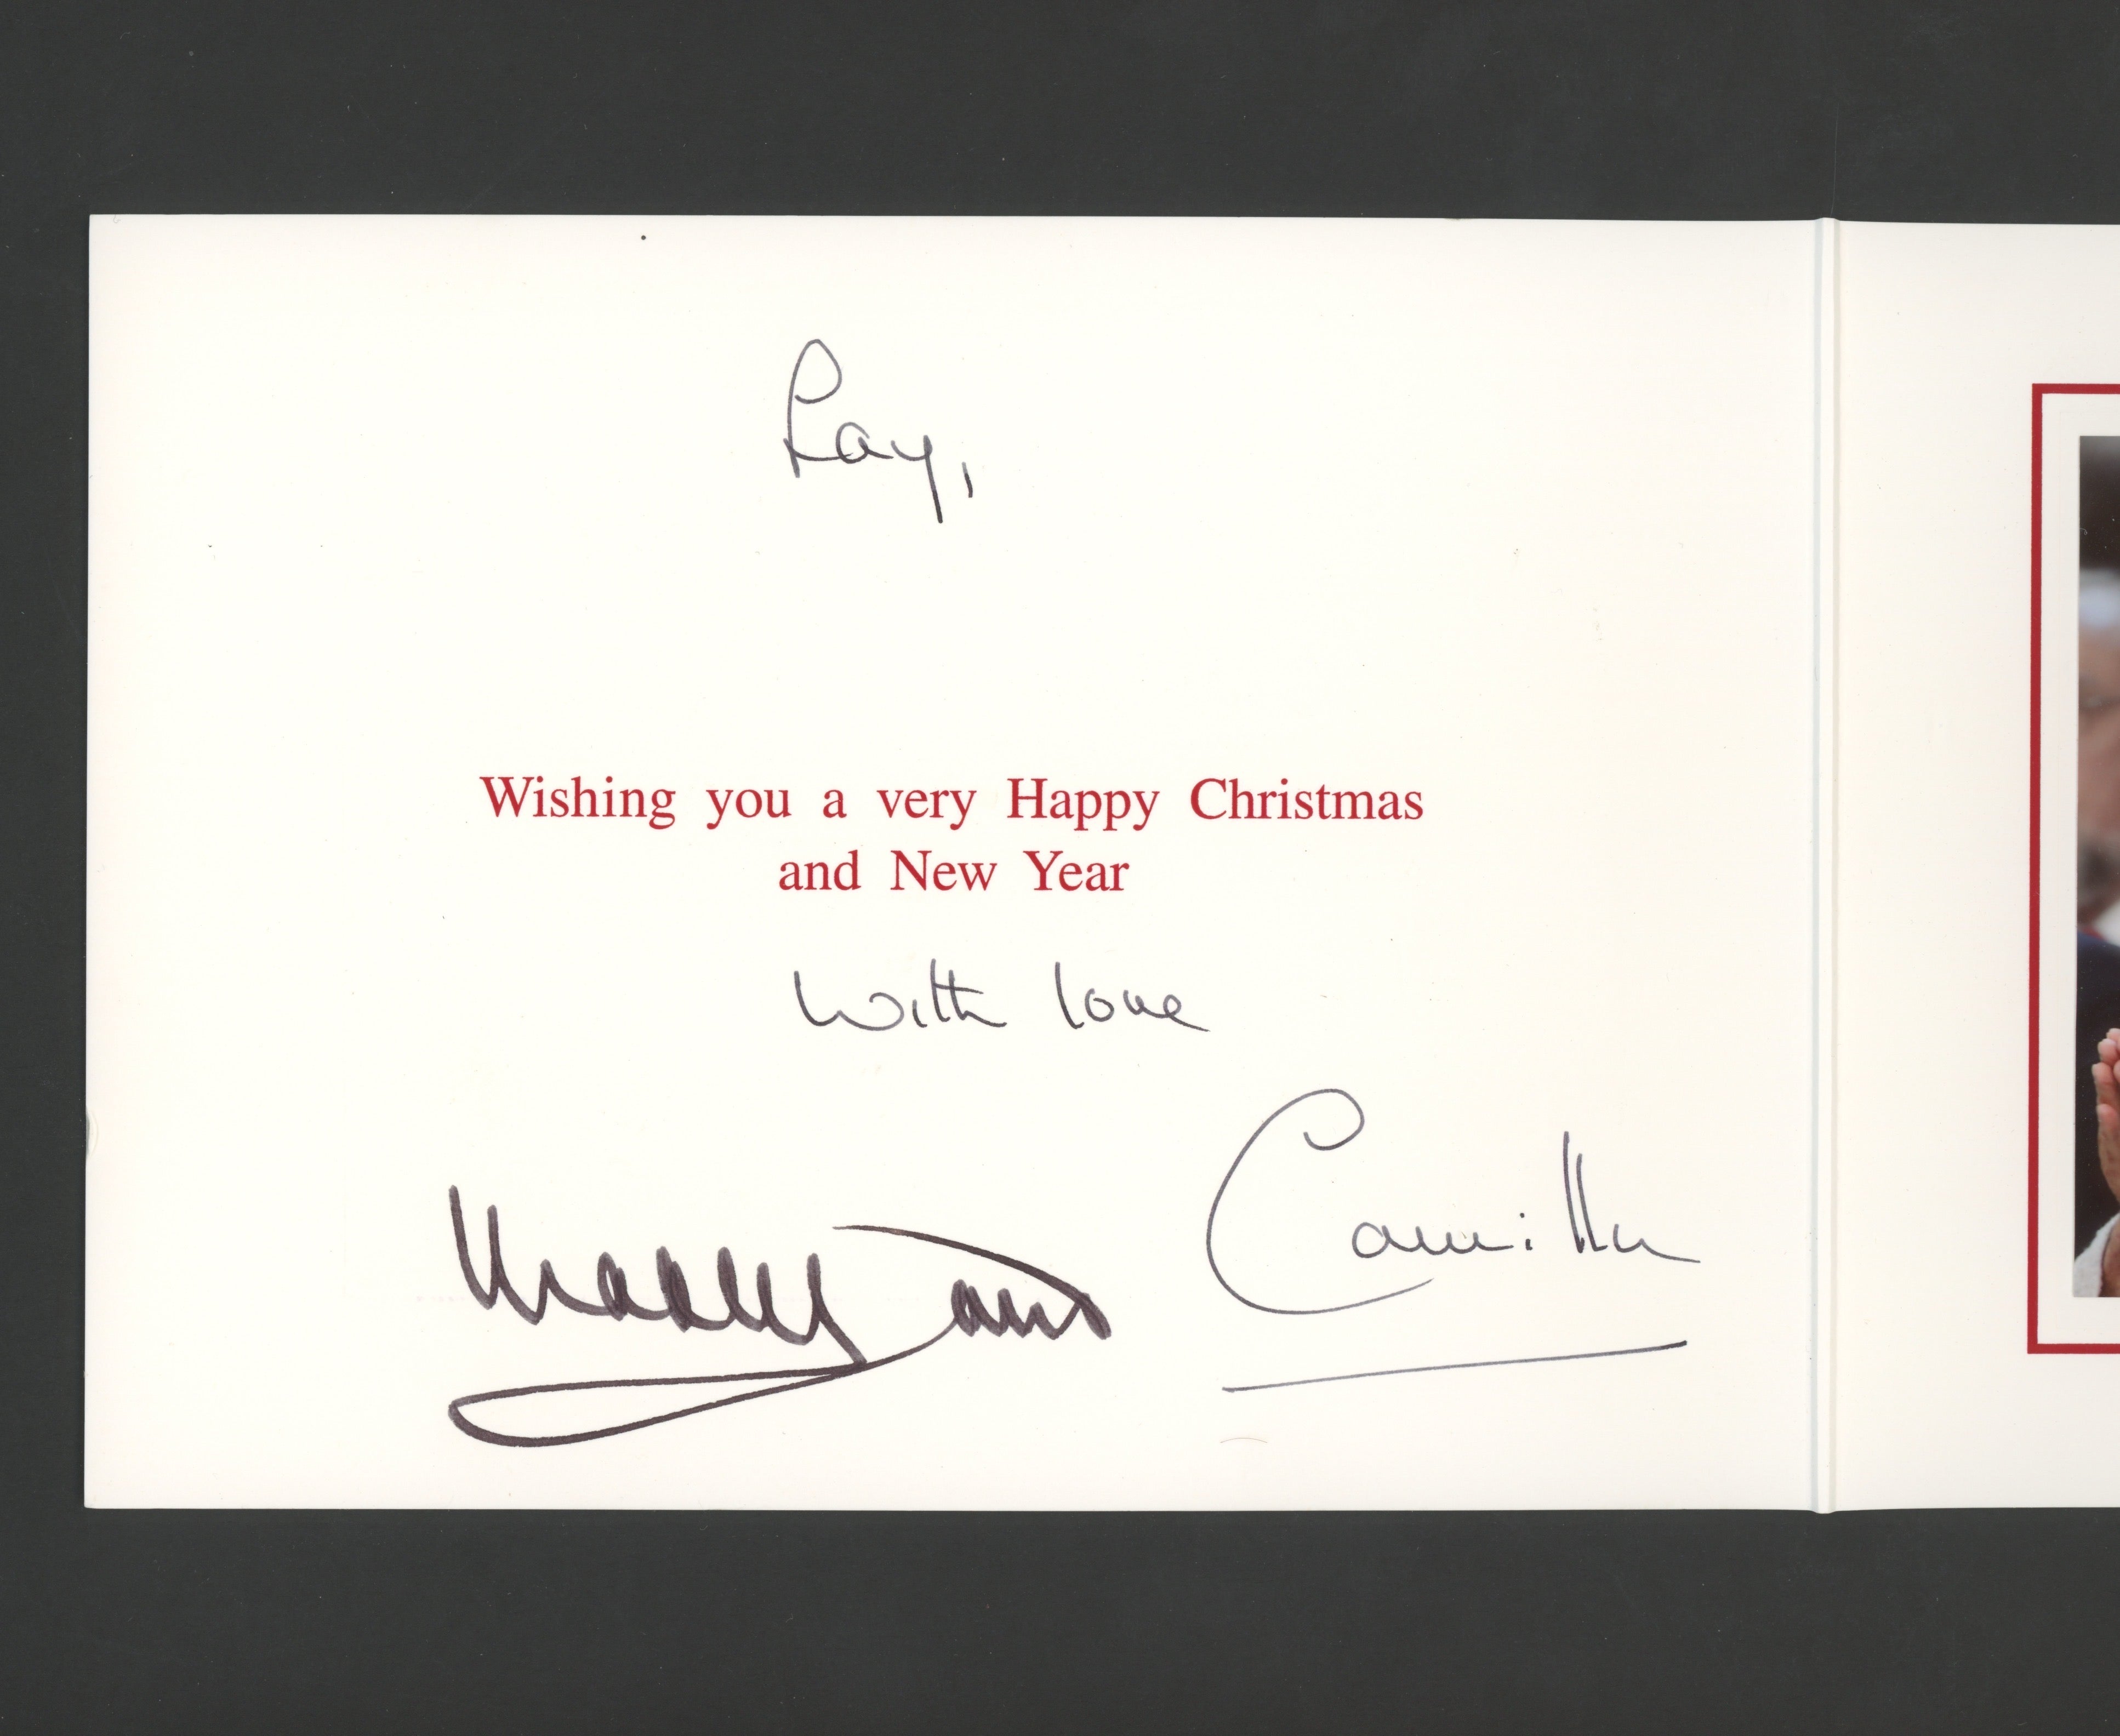 Ray,
Wishing you a very Happy Christmas
and New Year
with love
Camilla